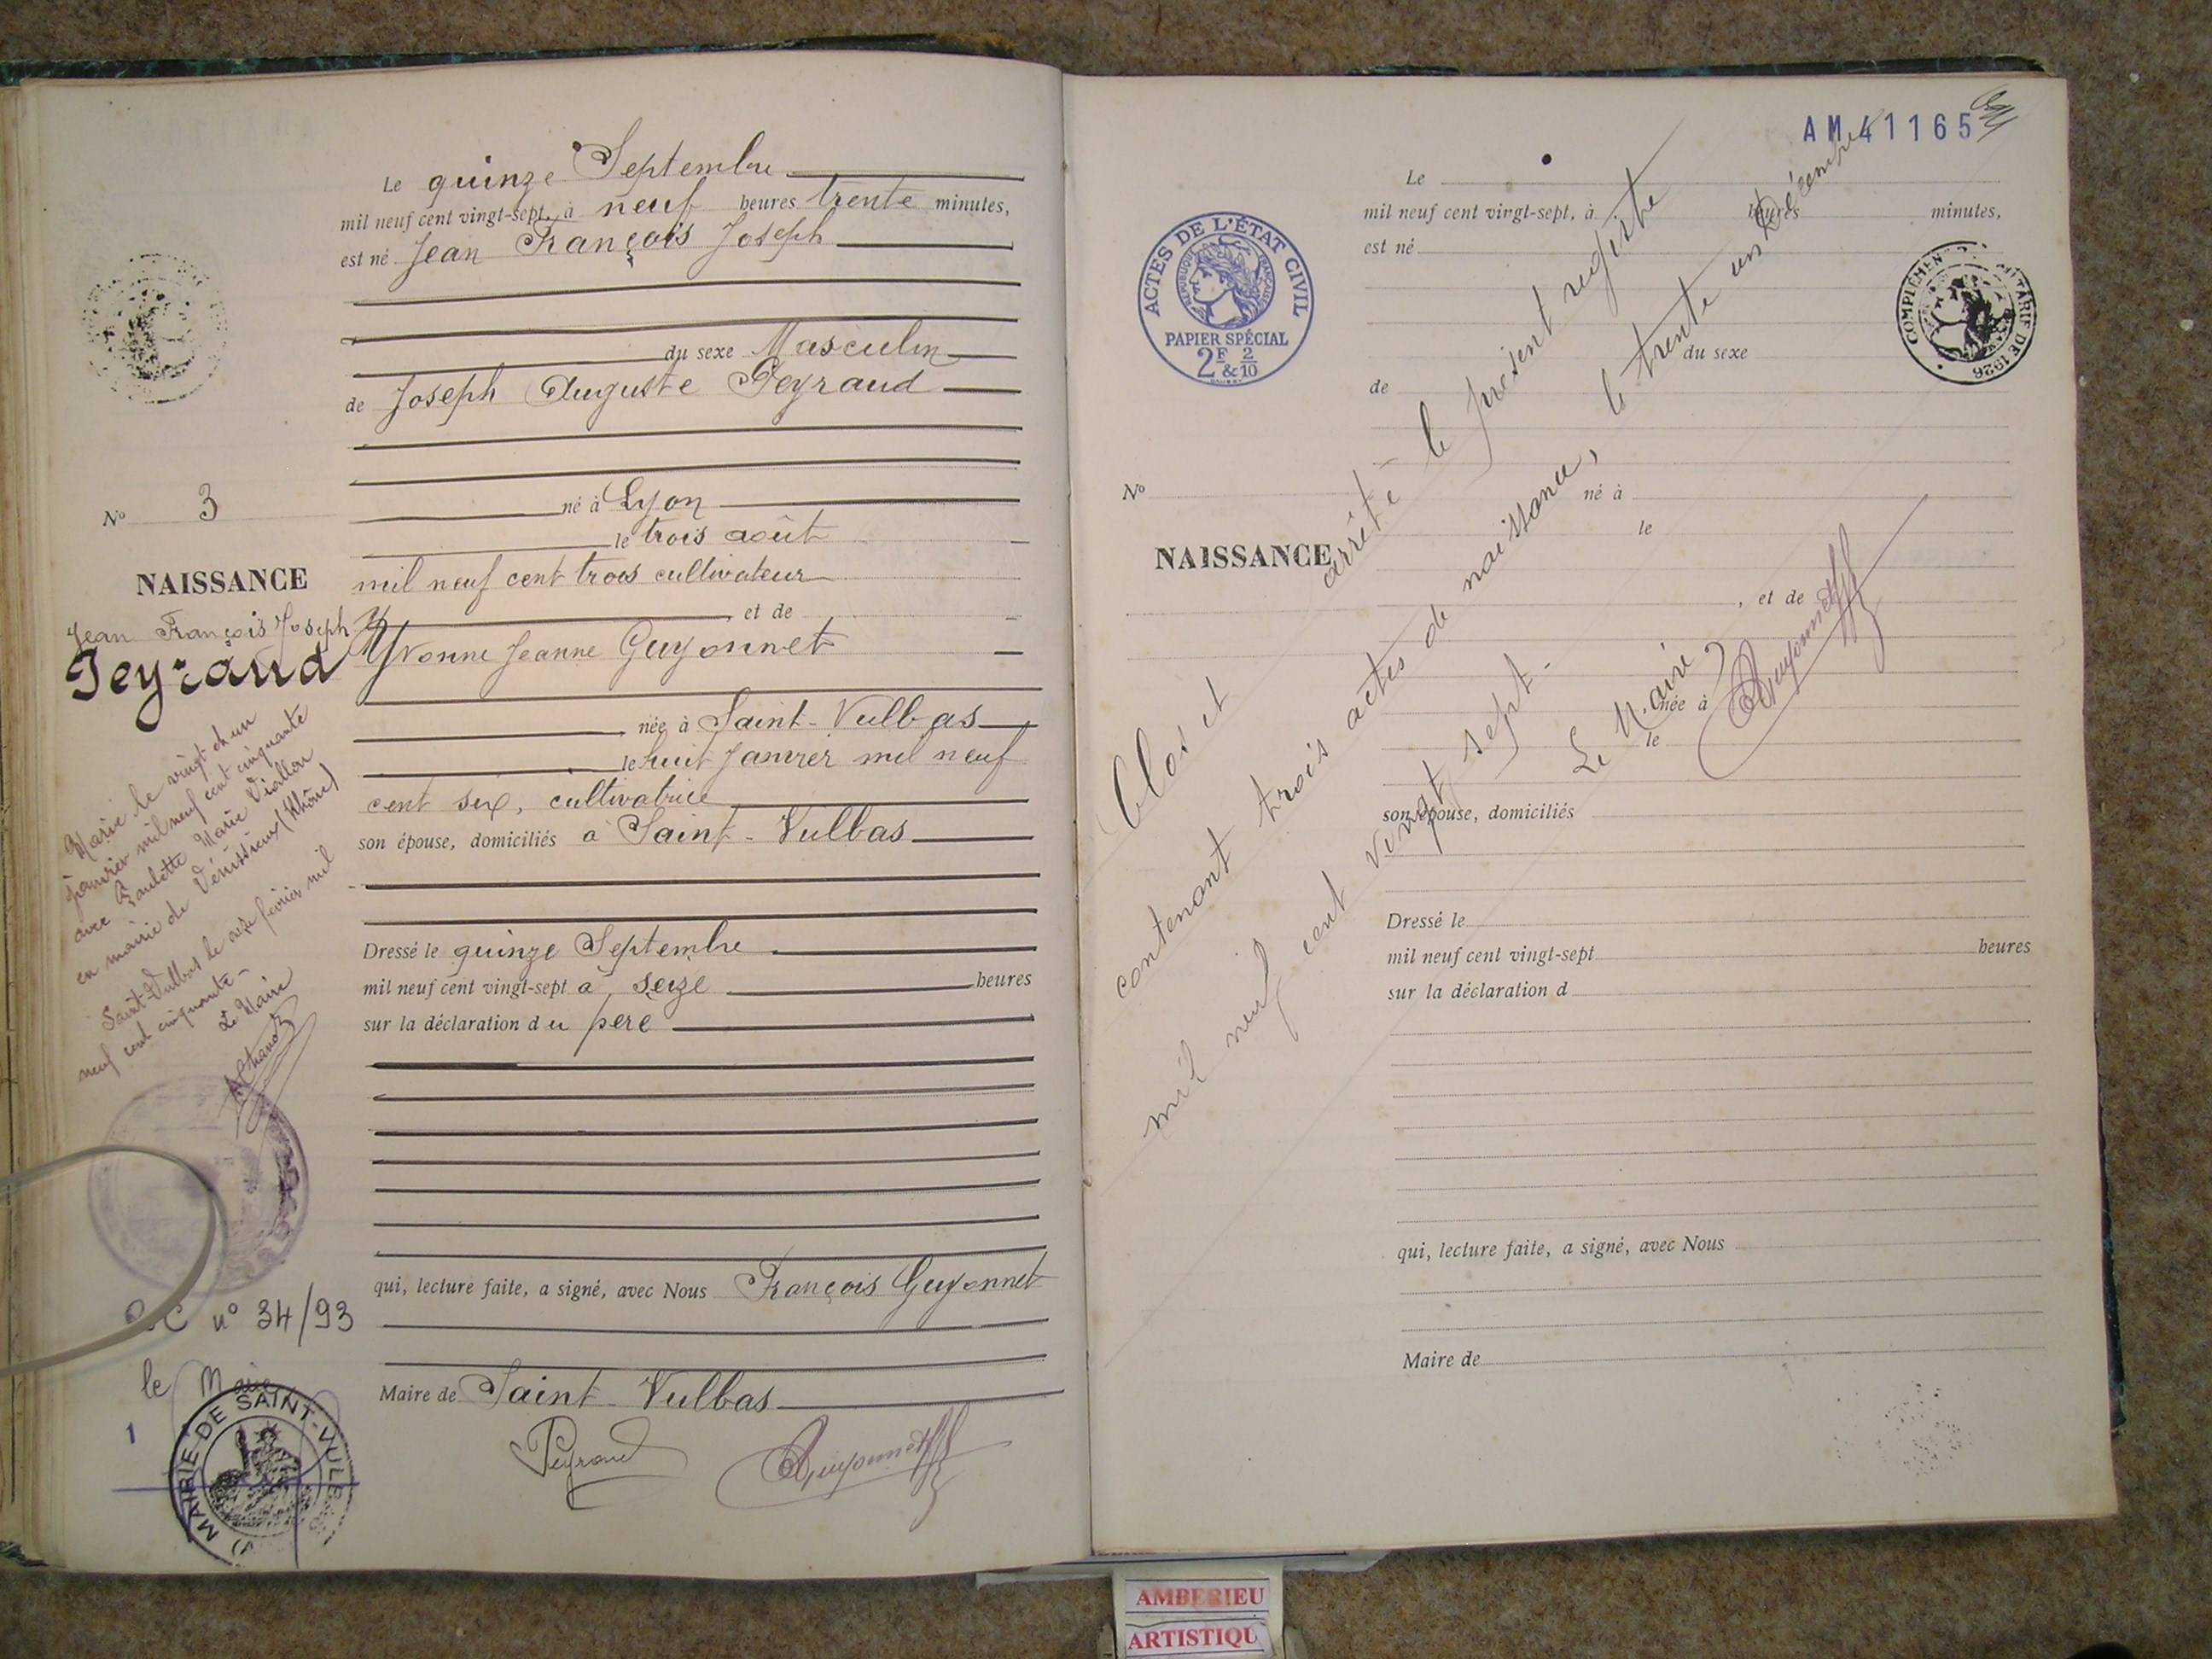 Le quinze Septembre
mil neuf cent vingt-sept, à neuf heures trente minutes,
est né Jean François Joseph
du sexe Masculin
de Joseph Auguste Peyraud
né à Lyon
le trois août
mil neuf cent trois cultivateur
et de
Yvonne Jeanne Guyonnet
née à Saint-Vulbas
le huit Janvier mil neuf
cent six, cultivatrice
son épouse, domiciliés à Saint-Vulbas
Dressé le quinze Septembre
mil neuf cent vingt-sept à seize heures
sur la déclaration du père
qui, lecture faite, a signé, avec Nous François Guyonnet
Maire de Saint-Vulbas
Peyraud Guyonnet
No 3
NAISSANCE
Jean François Joseph
Peyraud
Marié le vingt et un
janvier mil neuf cent cinquante
avec Paulette Marie Viallon
en mairie de Vénissieux (Rhône)
Saint-Vulbas le seize février mil
neuf cent cinquante -
Le Maire
n° 34/93
le Maire
1
MAIRIE DE SAINT-VULB
AM 41165
ACTES DE L'ÉTAT CIVIL
RÉPUBLIQUE FRANÇAISE
PAPIER SPÉCIAL
2F & 2/10
COMPLÉMEN TARIF DE 1926
Le
mil neuf cent vingt-sept, à heures minutes,
est né
du sexe
de
No
né à
le
NAISSANCE
, et de
née à
le
son épouse, domiciliés
Dressé le
mil neuf cent vingt-sept heures
sur la déclaration d
qui, lecture faite, a signé, avec Nous
Maire de
Clos et arrêté le présent registre
contenant trois actes de naissance, le trente un Décembre
mil neuf cent vingt sept.
Le Maire,
Guyonnet
AMBERIEU
ARTISTIQU